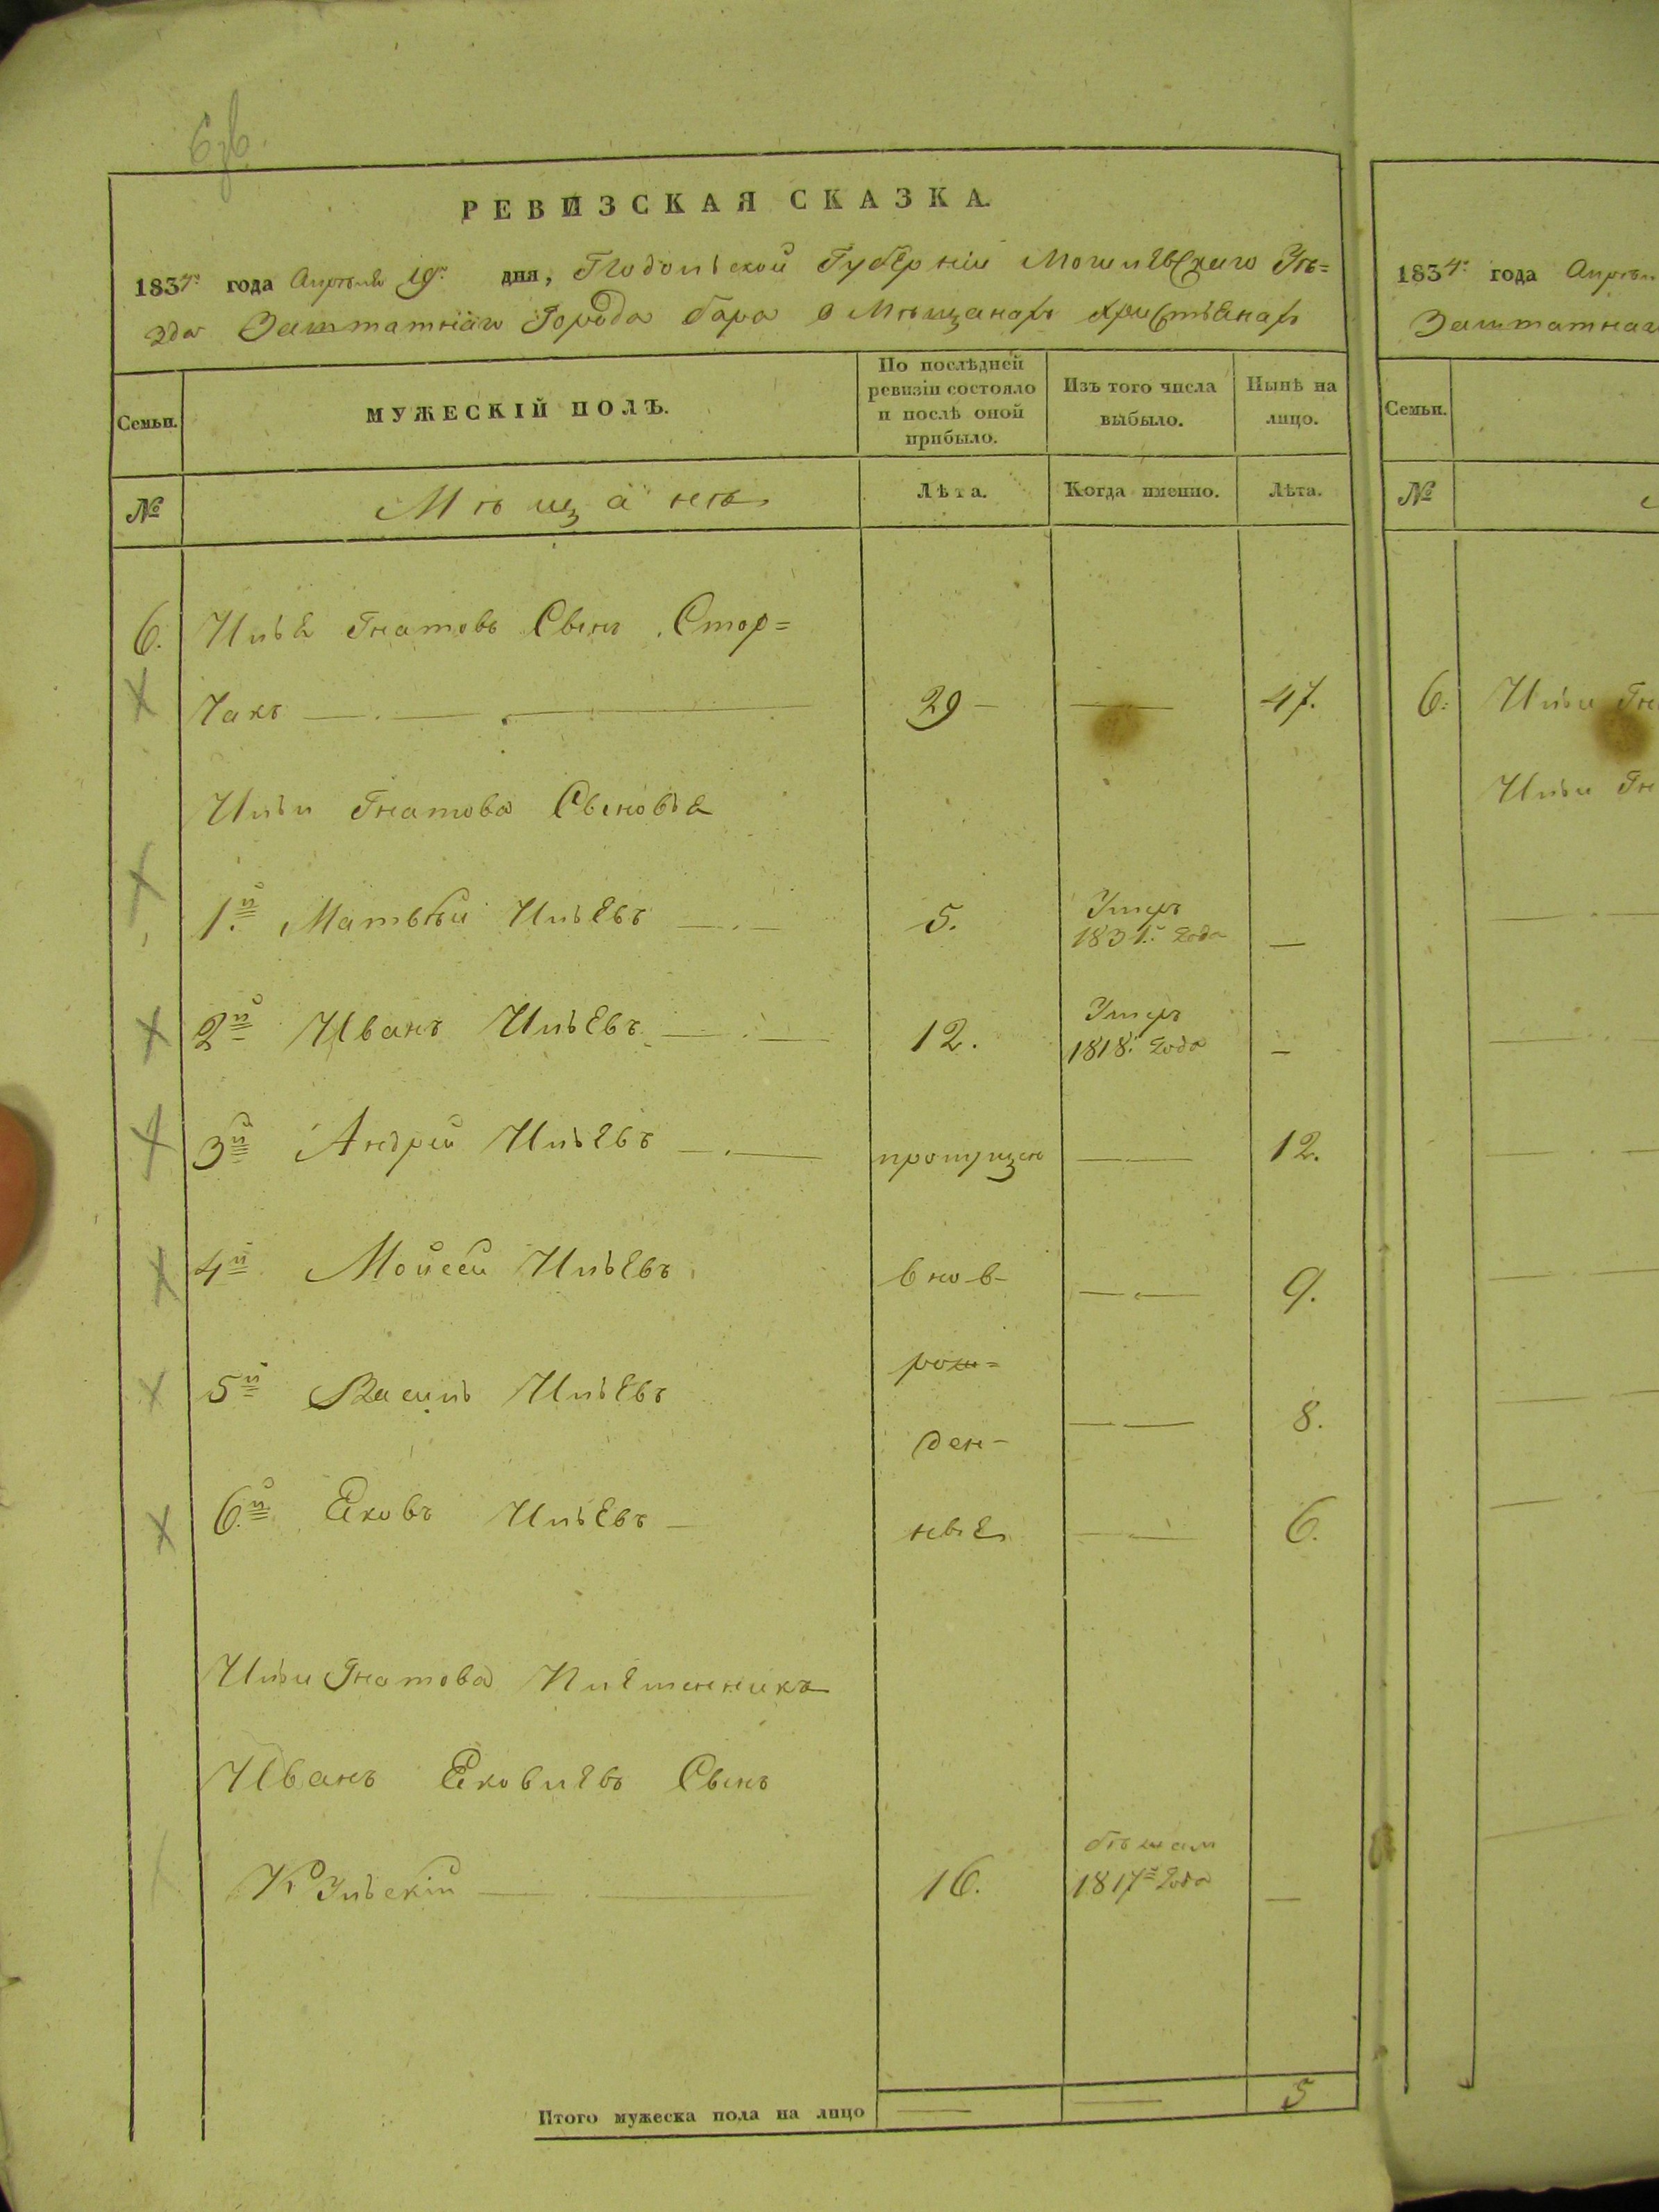 РЕВИЗСКАЯ СКАЗКА.
1834го года Апрѣля 19го дня, Подольской Губерніи Могилевскаго Уѣ=
зда Заштатнаго Города бара о Мѣщанахъ христіянахъ
Семьи.
МУЖЕСКІЙ ПОЛЪ.
По послѣдней ревизіи состояло и послѣ оной прибыло.
Изъ того числа выбыло.
Нынѣ на лицо.
№
Мѣщанѣ
Лѣта.
Когда именно.
Лѣта.
6. Илья Гнатовъ Сынъ Стор=
чакъ 29 47.
Ильи Гнатова Сыновья
1.й Матвѣй Ильевъ 5. Умеръ 1831. года —
2й Иванъ Ильевъ 12. Умеръ 1818. года —
3й Андрей Ильевъ пропущен 12.
4й Мойсей Ильевъ внов- 9.
рож=
5й Василь Ильевъ 8.
ден-
6й Яковъ Ильевъ ные 6.
Ильи Гнатова Племенникъ
Иванъ Яковлевъ Сынъ
Кульскій 16. бѣжал 1817го года —
Итого мужеска пола на лицо 5
1834го года Апрѣл
Заштатнаг
Семьи.
№
6. Ильи Гн
Ильи Гн